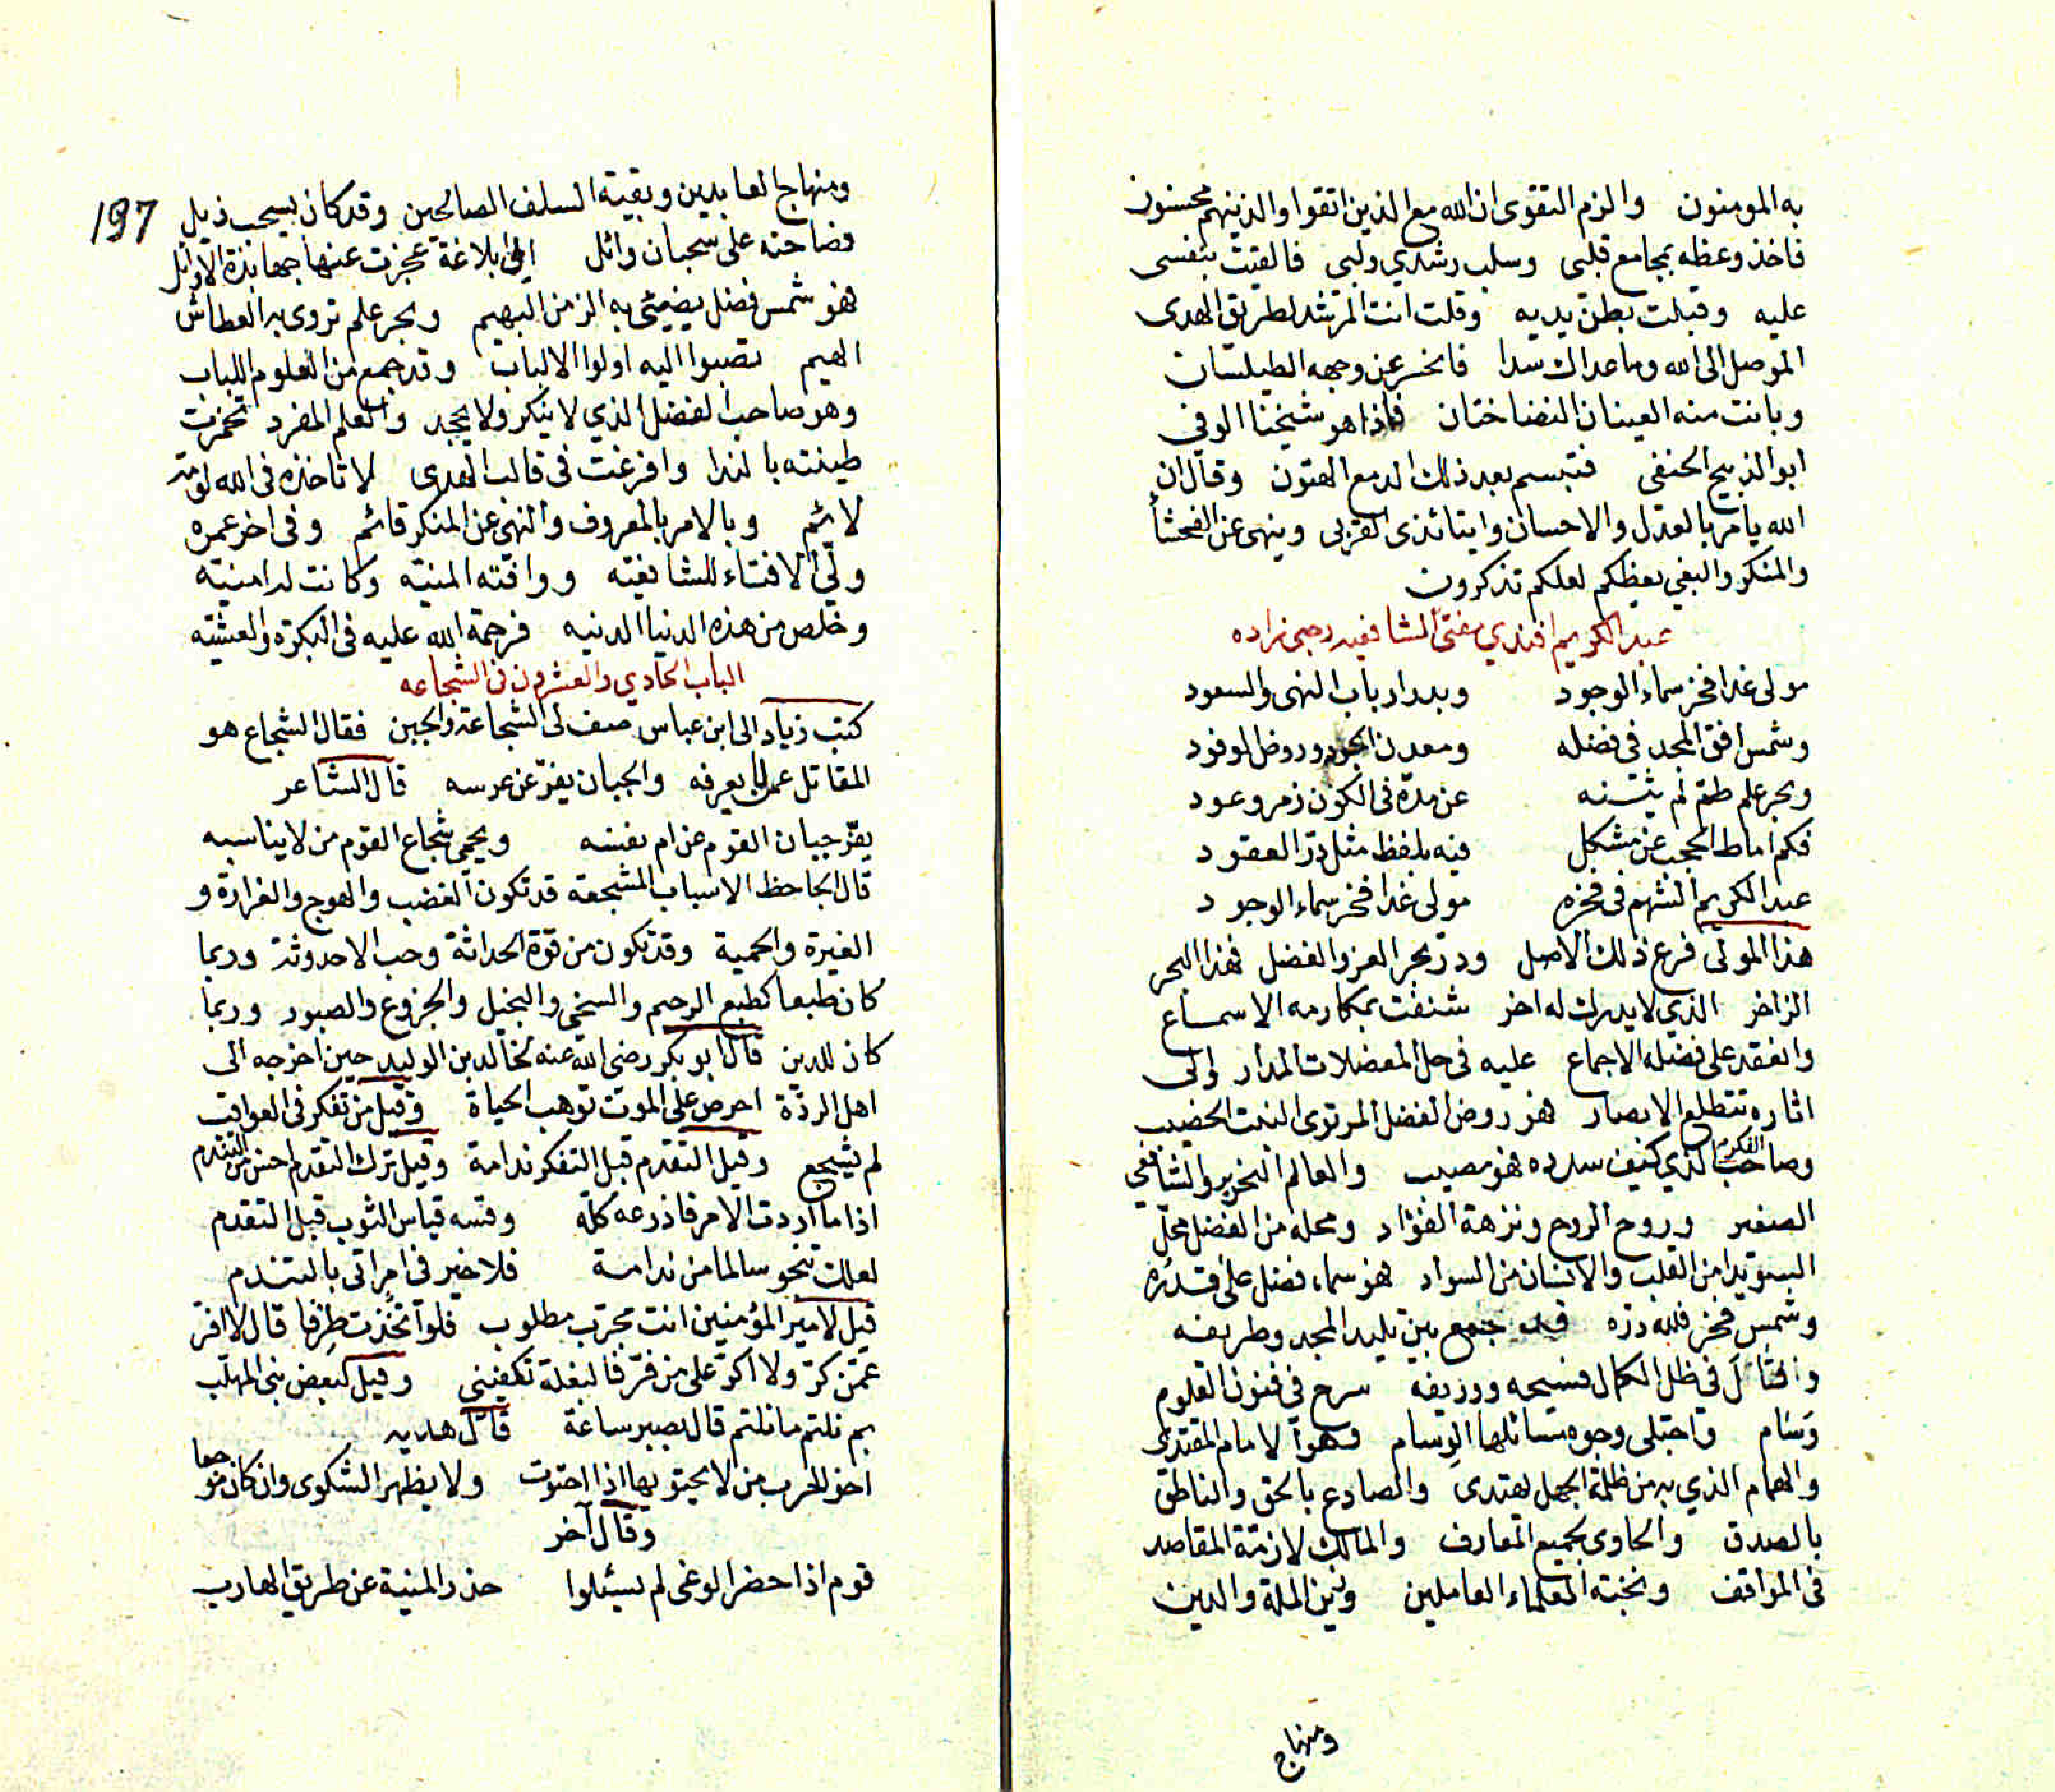 به المومنون والزم التقوى ان الله مع الذين اتقوا والذينهم محسنون
فاخذ وعظه بمجامع قلبى وسلب رشدي ولبي فالقيت بنفسى
عليه وقبلت بطن يديه وقلت انت المرشد لطريق الهدى
الموصل الى الله وما عداك سدا فانحسر عن وجهه الطيلسان
وبانت منه العينان النضاختان فاذا هو شيخنا الوفي
ابو الذبيح الحنفى فتبسم بعد ذلك الدمع الهتون وقال ان
الله يامر بالعدل والاحسان وايتائذى القربى وينهى عن الفحشأ
والمنكر والبغي يعظكم لعلكم تذكرون
عبد الكريم افندي مفتى الشافعيه رحبى زاده
مولى غدا فخر سماء الوجود وبدر ارباب النهى والسعود
وشمس افق المجد في فضله ومعدن الجود وروض الوفود
وبحر علم طم لم يثنه عن مدة فى الكون زمر وعود
فكم اماط الحجب عن مشكل فيه بلفظ مثل در العقود
عبد الكريم الشهم فى فخره مولى غدا فخر سماء الوجود
هذا المولى فرع ذلك الاصل ودر بحر العز والفضل فهذا البحر
الزاخر الذي لا يدرك له اخر شنفت بمكارمه الاسماع
وانعقد على فضله الاجماع عليه فى حل المعضلات المدار والى
اثاره تتطلع الابصار فهو روض الفضل المرتوى النبت الخضيب
وصاحب الفكر الذي كيف سدده فهو مصيب والعالم النحرير والشافعي
الصغير وروح الروح ونزهة الفؤاد ومحله من الفضل محل
السويدا من القلب والانسان من السواد فهو سماء فضل على قدره
وشمس فخر فلله دره قد جمع بين تليد المجد وطريفه
فى ظل الكمال فسيحه ووريفه سرح فى فنون العلوم
وسام واجتلى وجوه مسائلها الوسام وهو الامام المقتدى
والهمام الذي به من ظلمة الجهل يهتدى والصادع بالحق والناطق
بالصدق والحاوى لجميع المعارف والمالك لازمة المقاصد
فى المواقف ونخبته العلماء العاملين وزين الملة والدين
ومنهاج
197
ومنهاج العابدين وبقية السلف الصالحين وقد كان يسحب ذيل
فصاحته على سحبان وائل الى بلاغة عجزت عنها جهابذة الاوائل
فهو شمس فضل يضيئ به الزمن البهيم وبحر علم تروى به العطاش
الهيم تصبوا اليه اولوا الالباب وقد جمع من العلوم اللباب
وهو صاحب الفضل الذي لا ينكر ولا يجحد والعلم المفرد تخمرت
طينته بالندا وافرغت فى قالب الهدى لا تاخذه فى الله لومة
لائم وبالامر بالمعروف والنهى عن المنكر قائم وفى اخر عمره
ولي الافتاء للشافعيه ووافته المنيه وكانت له امنيه
وخلص من هذه الدنيا الدنيه فرحمة الله عليه فى البكرة والعشيه
الباب الحادي والعشرون فى الشجاعه
كتب زياد الى ابن عباس صف لى الشجاعة والجبن فقال الشجاع هو
المقاتل عمن لا يعرفه والجبان يفر عن عرسه قال الشاعر
يفر جبان القوم عن ام نفسه ويحمى شجاع القوم من لا يناسبه
قال الجاحظ الاسباب المشجعة قد تكون الغضب والهوج والغرارة و
الغيرة والحمية وقد تكون من قوة الحداثة وحب الاحدوثة وربما
كان طبعا كطبع الرحيم والسخي والبخيل والجزوع والصبور وربما
كان للدين قال ابو بكر رضى الله عنه لخالد بن الوليد حين اخرجه الى
اهل الردة احرص على الموت توهب الحياة وقيل من تفكر فى العواقب
لم يشجع وقيل التقدم قبل التفكر ندامة وقيل ترك التقدم احسن من التندم
اذا ما اردت الامر فاذرعه كله وقسه قياس الثوب قبل التقدم
لعلك تنجو سالما من ندامة فلا خير فى امر اتى بالتندم
قيل لامير المؤمنين انت مجرب مطلوب فلو اتخذت طرفا قال لا افر
عمن كر ولا اكر على من فر فالبغلة تكفينى وقيل لبعض بنى المهلب
بم نلتم ما نلتم قال بصبر ساعة قال هدبه
اخو الحرب من لا يجتويها اذا اجتوت ولا يظهر الشكوى وان كان موجعا
وقال آخر
قوم اذا حضر الوغى لم يسئلوا حذر المنية عن طريق الهارب